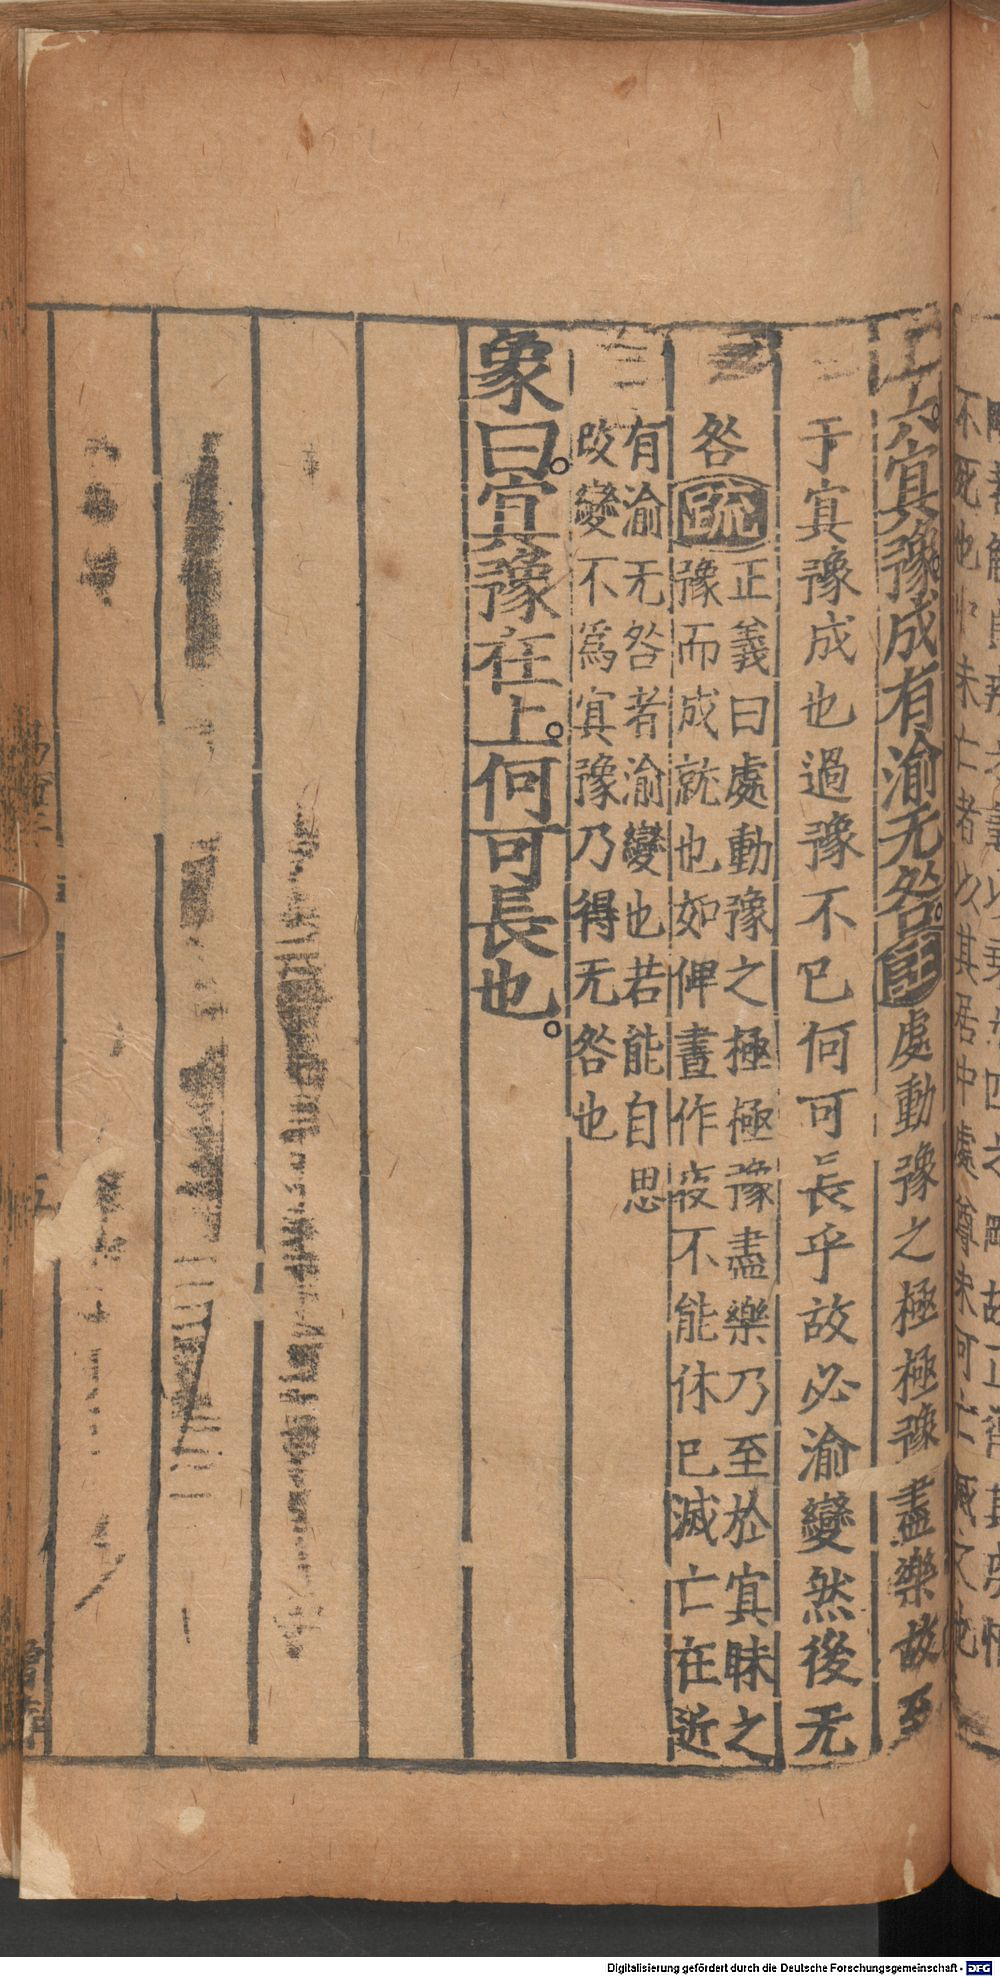 上六冥豫成有渝无咎註處動豫之極極豫盡樂故至
于冥豫成也過豫不已何可長乎故必渝變然後无
咎疏正義曰處動豫之極極豫盡樂乃至於冥昧之
豫而成就也如俾晝作夜不能休已滅亡在近
有渝无咎者渝變也若能自思
改變不爲冥豫乃得无咎也
象曰冥豫在上何可長也
Digitalisierung gefördert durch die Deutsche Forschungsgemeinschaft - DFG